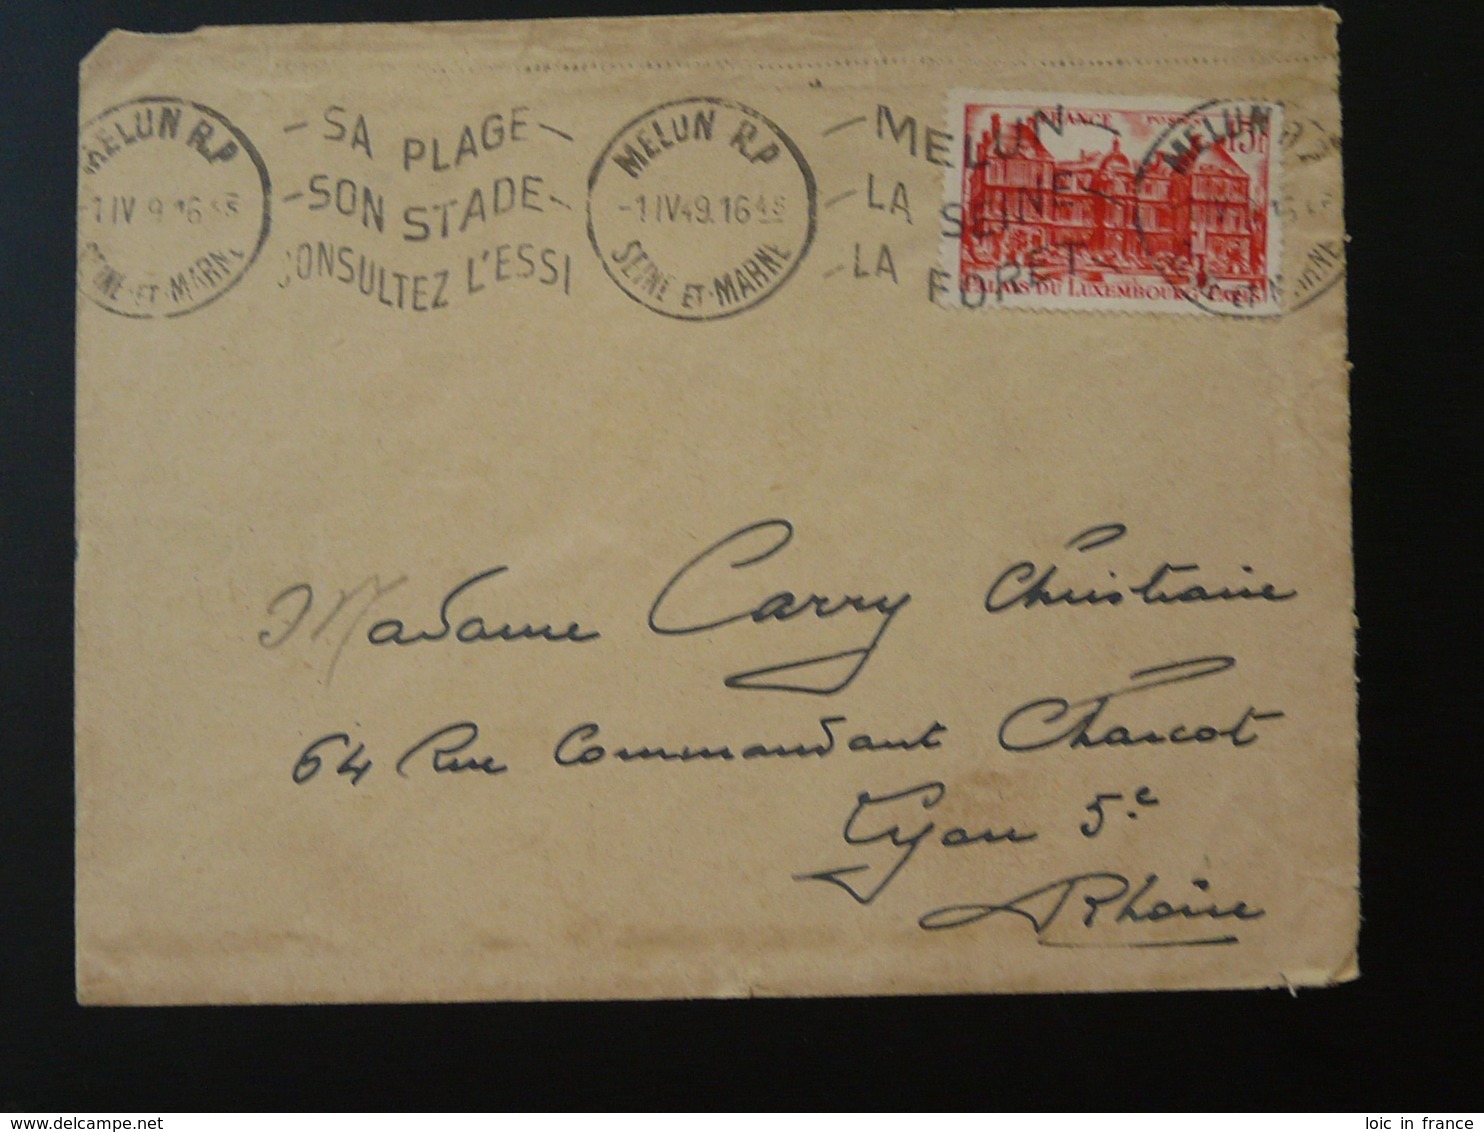 MELUN R.P
-1 IV 9 16 45
SEINE-ET-MARNE
SA PLAGE
SON STADE
CONSULTEZ L'ESSI
MELUN R.P
-1 IV 49.16 45
SEINE ET-MARNE
MELUN
LA SEINE
LA FORET
FRANCE POSTES 15F
PALAIS DU LUXEMBOURG-PARIS
MELUN
Madame Carry Christiane
64 Rue Commandant Charcot
Lyon 5e
Rhône
loic in france